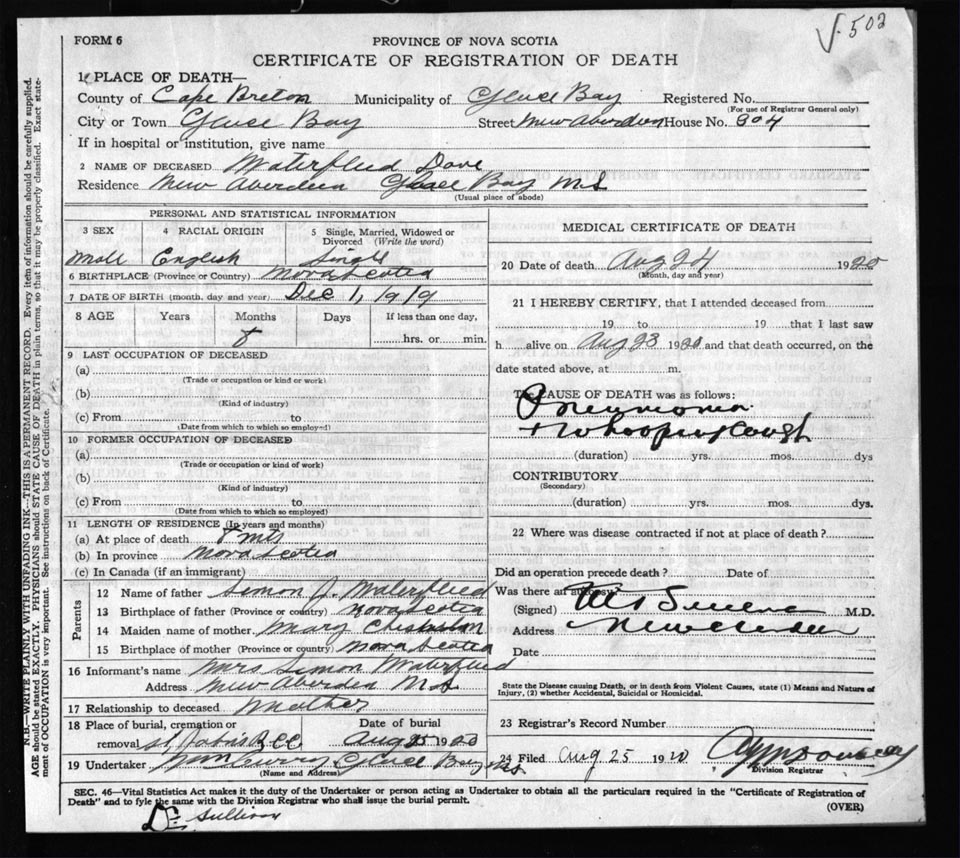 √. 502
FORM 6
PROVINCE OF NOVA SCOTIA
CERTIFICATE OF REGISTRATION OF DEATH
1 PLACE OF DEATH—
County of Cape Breton Municipality of Glace Bay Registered No.
(For use of Registrar General only)
City or Town Glace Bay Street New Aberdeen House No. 804
If in hospital or institution, give name
2 NAME OF DECEASED Waterfield Dave
Residence New Aberdeen Glace Bay N.S
(Usual place of abode)
PERSONAL AND STATISTICAL INFORMATION
3 SEX 4 RACIAL ORIGIN 5 Single, Married, Widowed or Divorced (Write the word)
Male English Single
6 BIRTHPLACE (Province or Country) Nova Scotia
7 DATE OF BIRTH (month, day and year) Dec 1, 1919
8 AGE Years Months Days If less than one day,
8 hrs. or min.
9 LAST OCCUPATION OF DECEASED
(a)
(Trade or occupation or kind or work)
(b)
(Kind of industry)
(c) From to
(Date from which to which so employed)
10 FORMER OCCUPATION OF DECEASED
(a)
(Trade or occupation or kind of work)
(b)
(Kind of industry)
(c) From to
(Date from which to which so employed)
11 LENGTH OF RESIDENCE (In years and months)
(a) At place of death 8 mts
(b) In province Nova Scotia
(c) In Canada (if an immigrant)
Parents
12 Name of father Simon J. Waterfield
13 Birthplace of father (Province or country) Nova Scotia
14 Maiden name of mother. Mary
15 Birthplace of mother (Province or country) Nova Scotia
16 Informant's name Mrs Simon Waterfield
Address New Aberdeen N.S
17 Relationship to deceased Mother
18 Place of burial, cremation or Date of burial
removal Aug 25 1920
19 Undertaker Glace Bay N.S.
(Name and Address)
MEDICAL CERTIFICATE OF DEATH
20 Date of death Aug 24 1920
(Month, day and year)
21 I HEREBY CERTIFY, that I attended deceased from
19 to 19 that I last saw
h alive on Aug 23 1920 and that death occurred, on the
date stated above, at m.
The CAUSE OF DEATH was as follows:
Pneumonia
+ Whooping Cough
(duration) yrs. mos. dys
CONTRIBUTORY
(Secondary)
(duration) yrs. mos. dys.
22 Where was disease contracted if not at place of death?
Did an operation precede death? Date of
Was there an autopsy?
(Signed) M.D.
Address New Aberdeen
Date
State the Disease causing Death, or in death from Violent Causes, state (1) Means and Nature of
Injury, (2) whether Accidental, Suicidal or Homicidal.
23 Registrar's Record Number
24 Filed Aug 25 1920
Division Registrar
SEC. 46—Vital Statistics Act makes it the duty of the Undertaker or person acting as Undertaker to obtain all the particulars required in the "Certificate of Registration of
Death" and to fyle the same with the Division Registrar who shall issue the burial permit.
(OVER)
Dr Sullivan
N.B.—WRITE PLAINLY WITH UNFADING INK—THIS IS A PERMANENT RECORD. Every item of information should be carefully supplied.
AGE should be stated EXACTLY. PHYSICIANS should STATE CAUSE OF DEATH in plain terms, so that it may be properly classified. Exact state-
ment of OCCUPATION is very important. See instructions on back of Certificate.